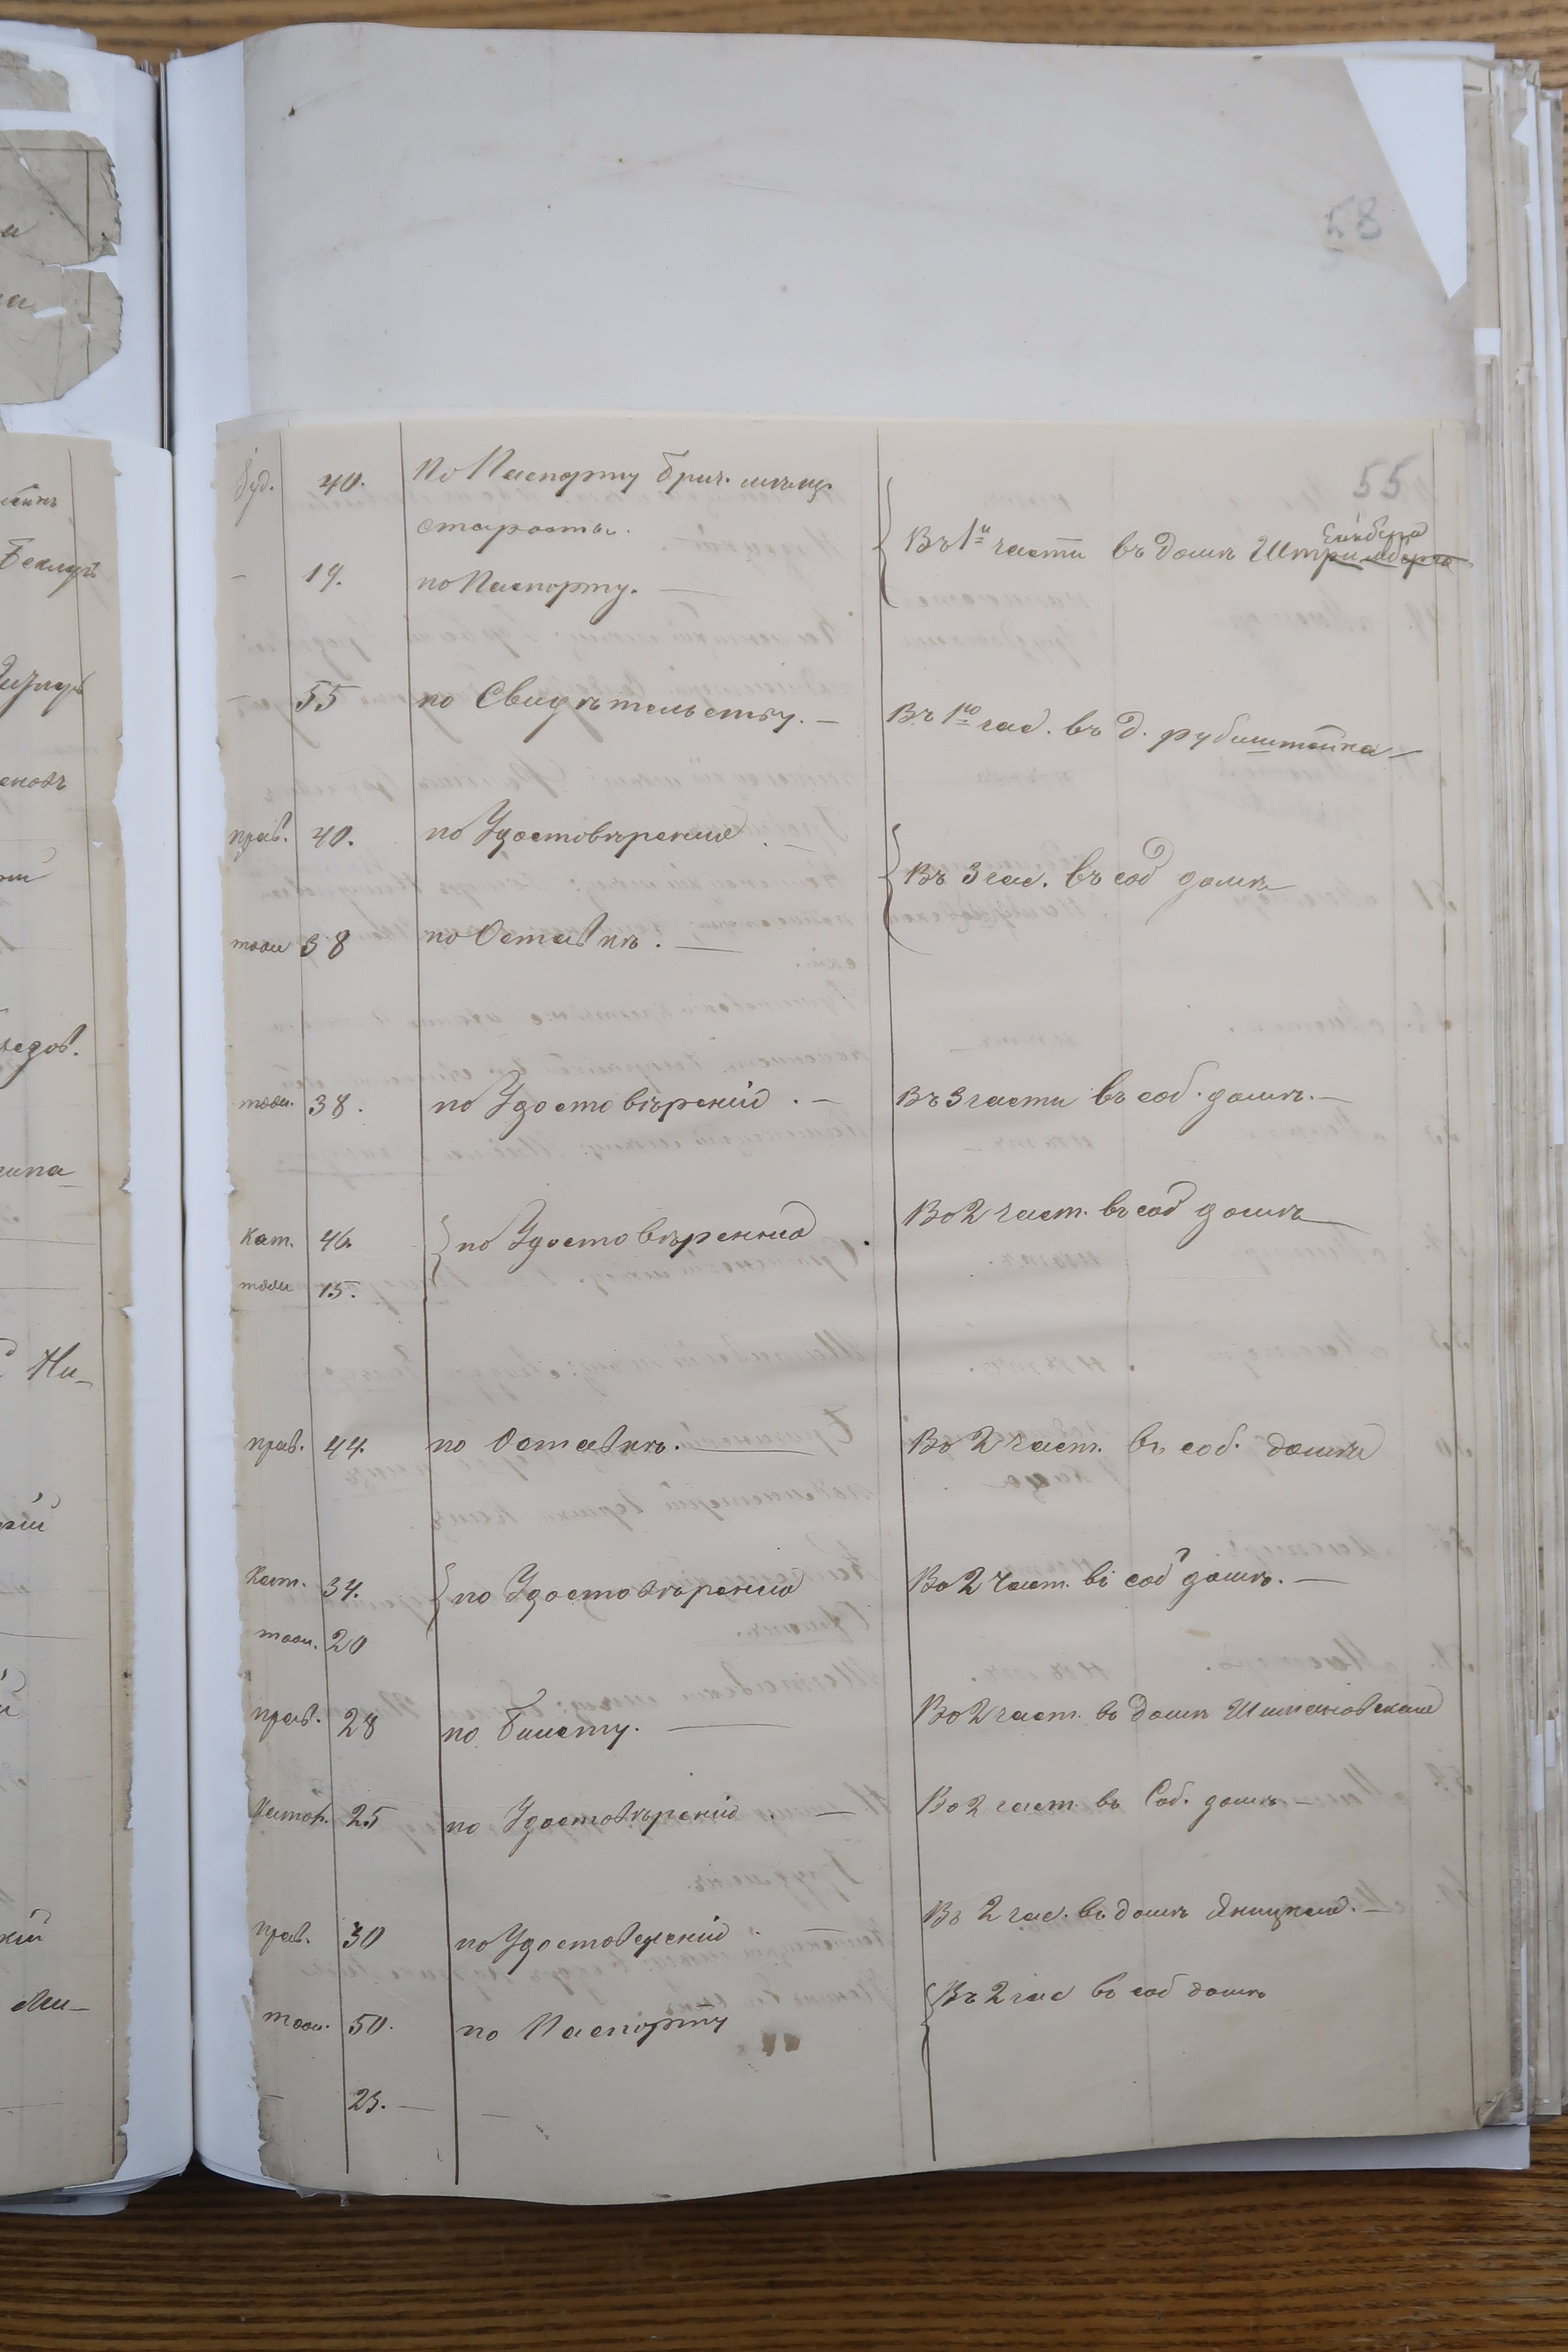 58
55
Іуд. 40. По Паспорту брич. мѣщ.
старосты.
Въ 1й части въ домѣ Штримберга Гинберга
— 19. по Паспорту. —
— 55 по Свидѣтельству. — Въ 1ю час. въ д. рубинштейна —
прав. 40. по Удостовѣренію. — Въ 3 час. въ соб домѣ
тоже 38 по Отставкѣ. —
тоже. 38. по Удостовѣренію. — Въ 3 части въ соб. домѣ. —
Кат. 46. по Удостовѣренію Во 2 част. въ соб домѣ
тоже 15.
прав. 44. по Отставкѣ. — Во 2 част. въ соб. домѣ
Кат. 34. по Удостовѣренію Во 2 част. въ соб домѣ. —
тоже. 20
прав. 28 по билету. — Во 2 част. въ домѣ Шимановскаго
Катол. 25 по Удостовѣренію. — Во 2 част. въ Соб. домѣ —
прав. 30 по Удостоверенію. Въ 2 час. въ домѣ Яницкаго. —
тоже. 50. по Паспорту Въ 2 час въ соб домѣ
— 25. — —